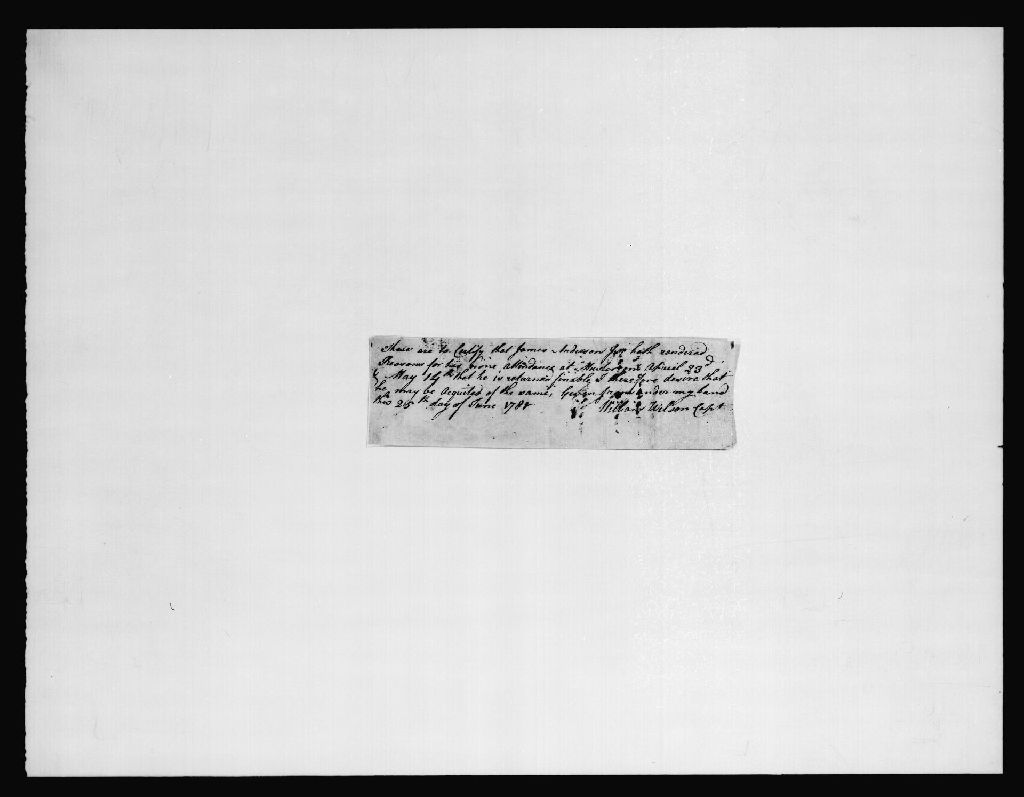 These are to Certify that James Anderson Junr hath rendered
Reasons for his none attendance at Musterings April 23d
& May 14th that he is returned finable I therefore desire that
he may be acquited of the same, Given from under my hand
this 25th day of June 178
William Wilson Capt